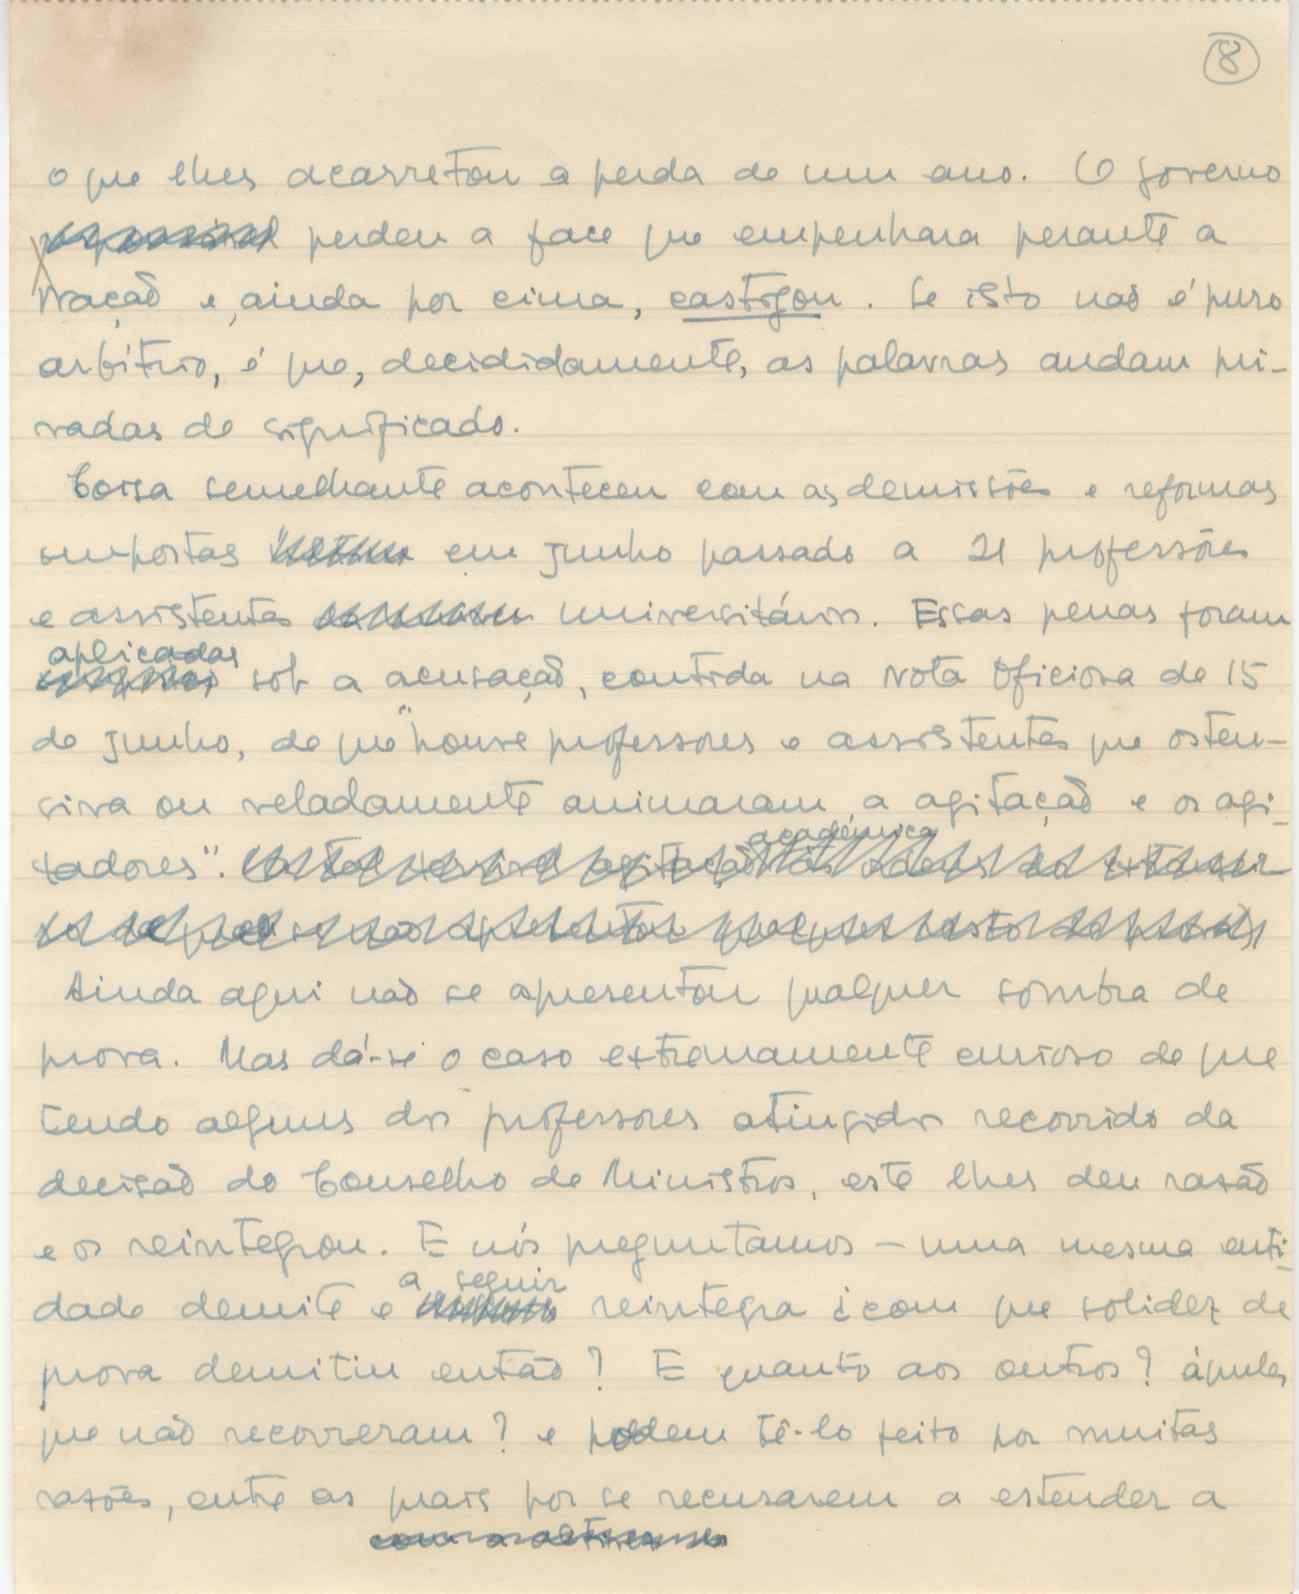 8
o que lhes acarretou a perda de um ano. O governo
perdeu a face que empenhara perante a
Nação e, ainda por cima, castigou. Se isto não é puro
arbítrio, é que, decididamente, as palavras andam pri-
vadas de significado.
Coisa semelhante aconteceu com as demissões e reformas
impostas em Junho passado a 21 professores
e assistentes universitários. Essas penas foram
aplicadas
sob a acusação, contida na Nota Oficiosa de 15
de Junho, de que "houve professores e assistentes que osten-
siva ou veladamente animaram a agitação e os agi-
tadores".
académica
Ainda aqui não se apresentou qualquer sombra de
prova. Mas dá-se o caso extremamente curioso de que
tendo alguns dos professores atingidos recorrido da
decisão do Conselho de Ministros, este lhes deu razão
e os reintegrou. E nós preguntamos – uma mesma enti-
a seguir
dade demite e reintegra ¿com que solidez de
prova demitiu então? E quanto aos outros? àqueles
que não recorreram? e podem tê-lo feito por muitas
razões, entre as quais por se recusarem a estender a